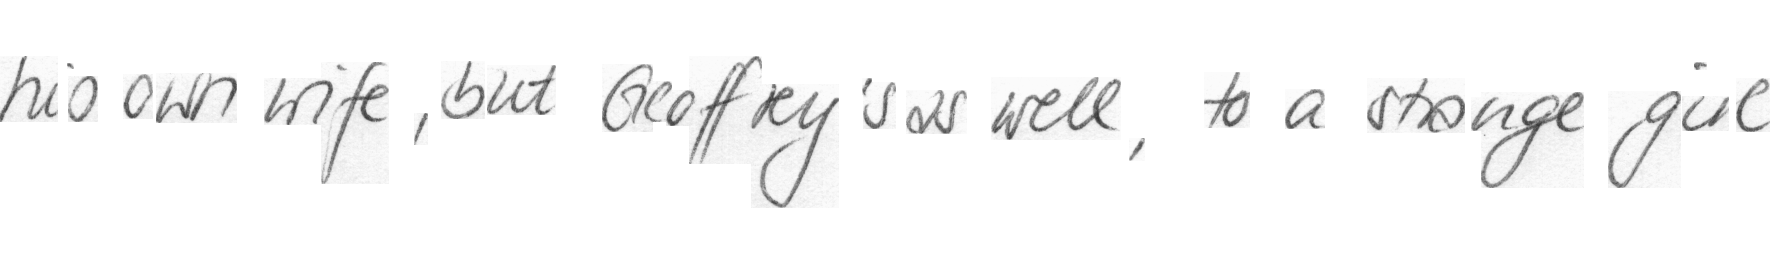 his own wife, but Geoffrey's as well, to a strange girl